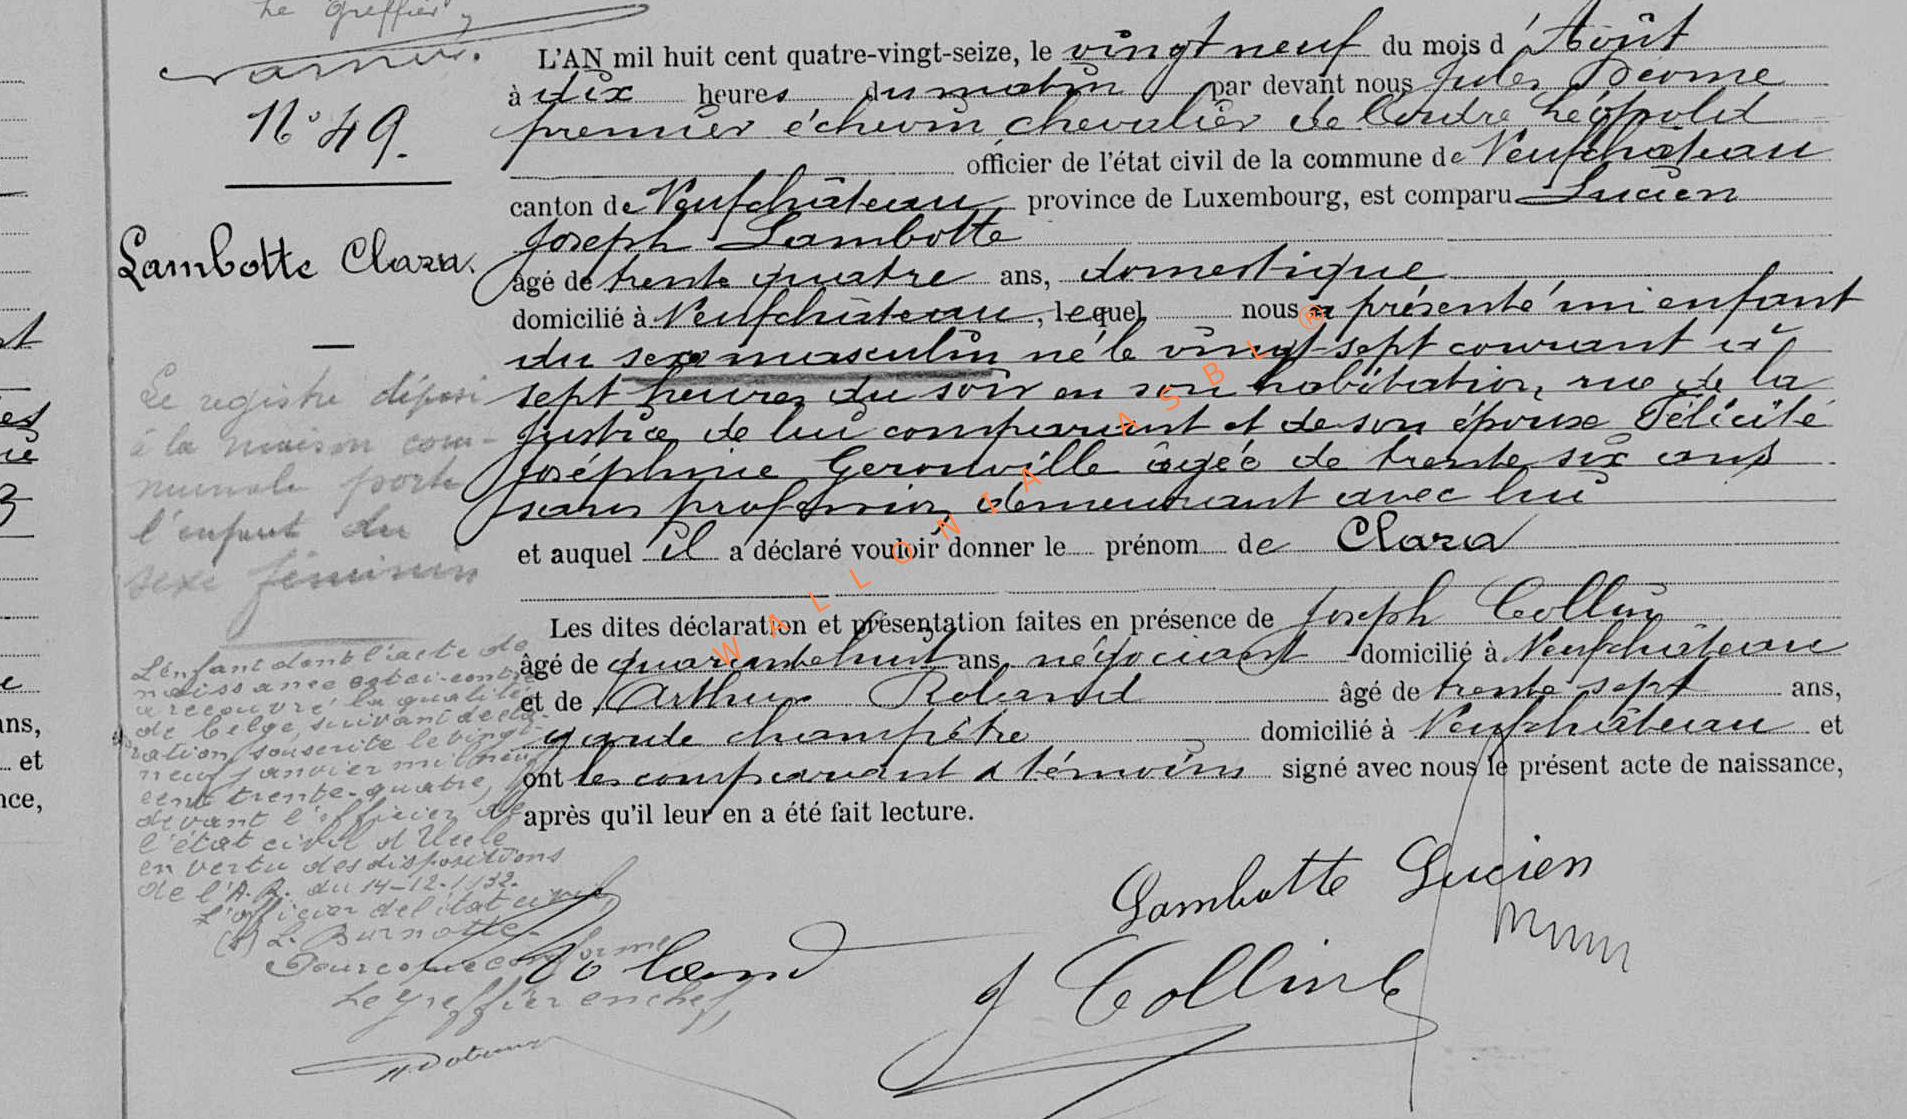 Le Greffier,
N° 49.
Lambotte Clara.
Le registre déposé
à la maison com-
munale porte
l'enfant du
sexe féminin
L'enfant dont l'acte de
naissance est ci-contre
a recouvré la qualité
de belge, suivant décla-
ration souscrite le vingt-
neuf janvier mil neuf
cent trente-quatre,
devant l'officier de
l'état civil d'Uccle
en vertu des dispositions
de l'A.R. du 14-12-1932.
L'officier de l'état civil,
(s) L. Burnotte.
Pour copie conforme
Le greffier en chef,
L'AN mil huit cent quatre-vingt-seize, le vingt neuf du mois d'Août
à dix heures du matin par devant nous Jules
premier échevin chevalier de l'ordre Léopold
officier de l'état civil de la commune de Neufchâteau
canton de Neufchâteau province de Luxembourg, est comparu Lucien
Joseph Lambotte
âgé de trente quatre ans, domestique
domicilié à Neufchâteau, lequel nous a présenté un enfant
du sexe masculin né le vingt-sept courant à
sept heures du soir en son habitation, rue de la
Justice de lui comparant et de son épouse Félicité
Joséphine Geronville âgée de trente six ans
sans profession demeurant avec lui
et auquel il a déclaré vouloir donner le prénom de Clara
Les dites déclaration et présentation faites en présence de Joseph Collin
âgé de quarante huit ans négociant domicilié à Neufchâteau
et de Arthur Roland âgé de trente sept ans,
garde champêtre domicilié à Neufchâteau et
ont les comparant & témoins signé avec nous le présent acte de naissance,
après qu'il leur en a été fait lecture.
Lambotte Lucien
Roland
J Collin
WALLONIA ASBL ®
st
es
3
e
ans,
et
nce,